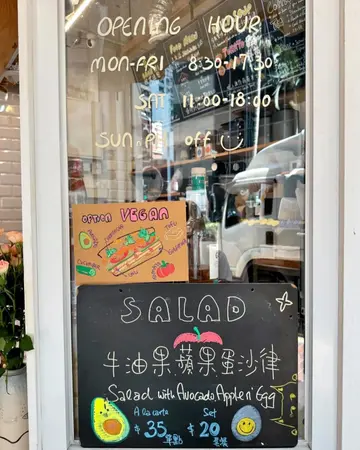 OPENING HOUR
MON-FRI 8:30-17:30
SAT 11:00-18:00
SUN off
OPTION VEGAN
TOFU
CUCUMBER
SALAD
牛油果蘋果蛋沙律
Salad with Avocado, Apple n' Egg
A la carte Set
$35 單點 $20 套餐